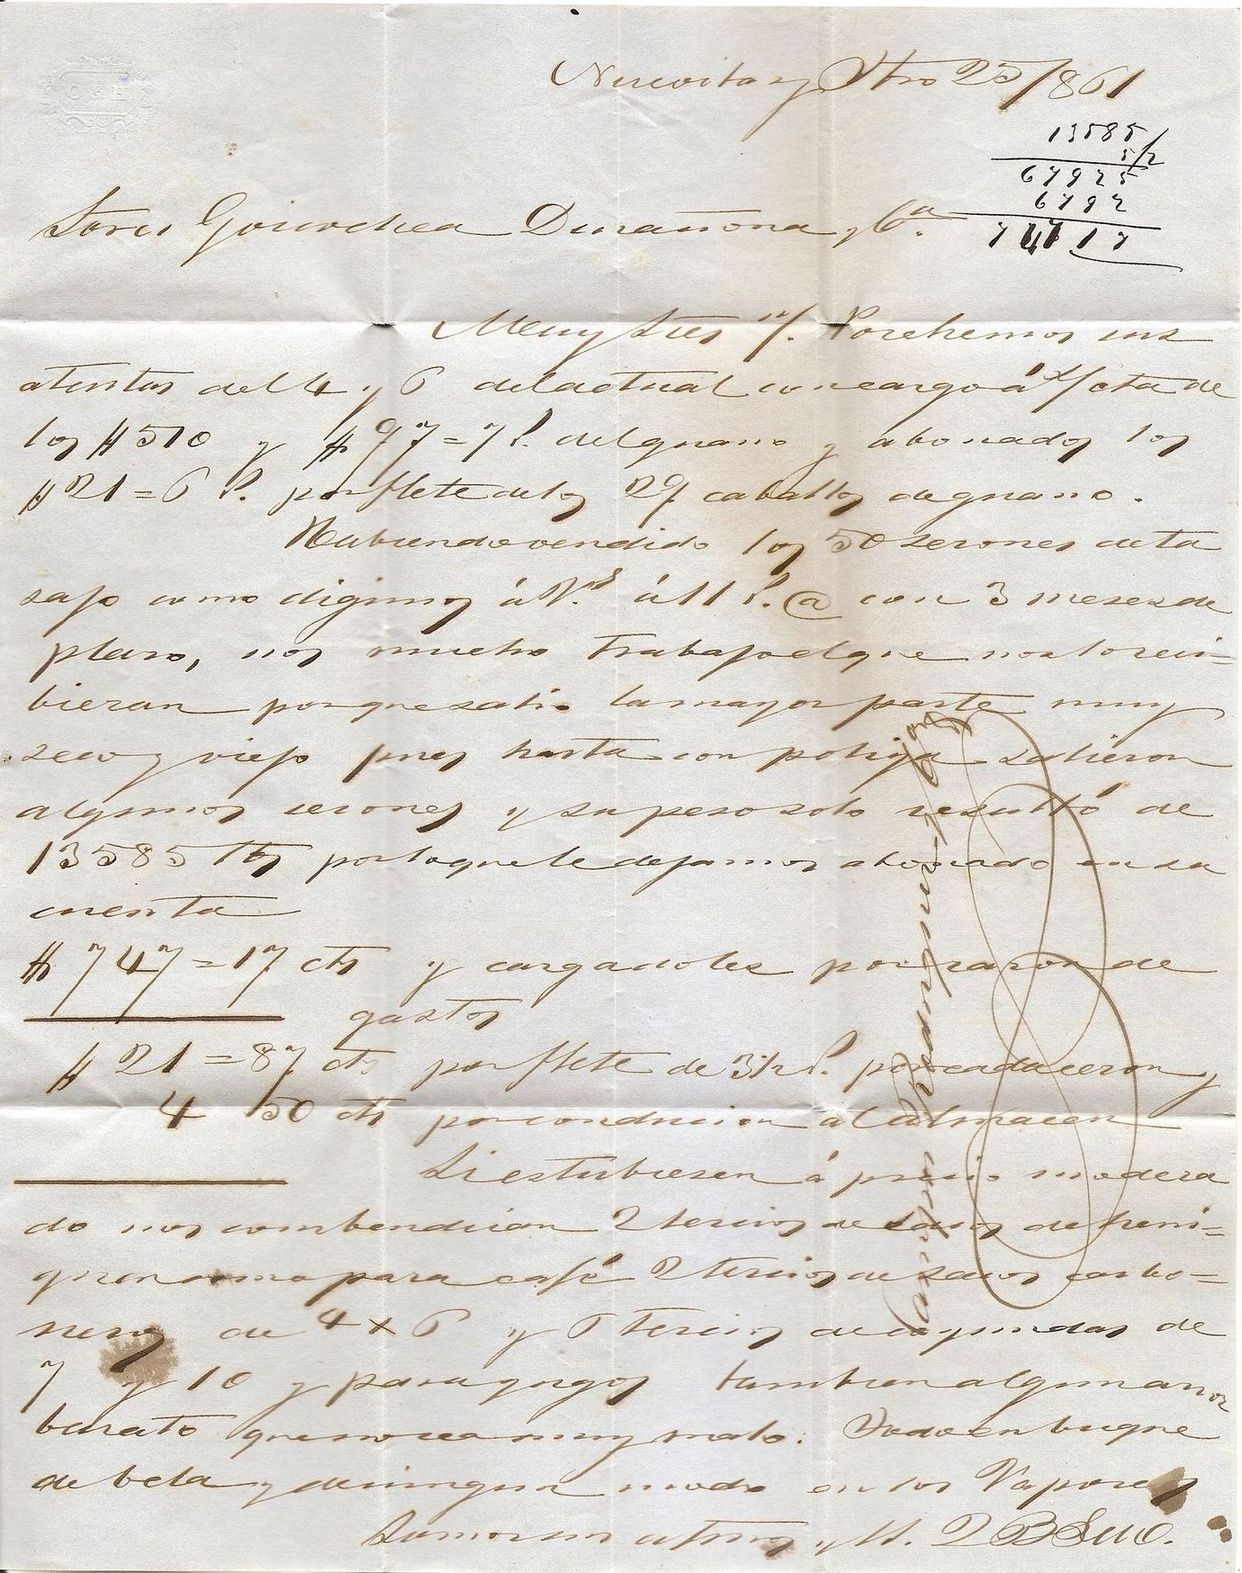 Nuevitas Otro 25/861
13585
5/2
67925
6792
74717
Sores Goicochea Durañona y Ca.
Muy Sres n/. Porehemos sus
atentas del 4 y 6 del actual con cargo á s/ cta de
los $510 y $97=7 P. del guano y abonados los
$21=6 P. por flete de los 29 caballos de guano.
Habiendo vendido los 50 serones de ta
sajo como digimos á Vs á 11 P. @ con 3 meses de
plaso, nos mucho trabajo el que nos lo reci=
bieran porque salio la mayor parte muy
seco y viejo pues hasta con polija salieron
algunos serones y su peso solo resultó de
13585 lbs por lo que le dejamos abonado en su
cuenta
$747=17 cts y cargadoles por razon de
gastos
$21=87 cts por flete de 3 1/2 P. por cada ceron y
4 50 cts por conducion al almacen
Si estubiesen á precio modera
do nos combendrian 2 tercios de sacos de heni=
quen como para café 2 tercios de sacos carbo=
neros de 4 x 6 y 6 tercios de coyundas de
7 y 10 y para yugos tambien algun arros
barato que no sea muy malo. Todo en buque
de bela y de ningun modo en los Vapores
Somos sus atmos y S. Q B S M.